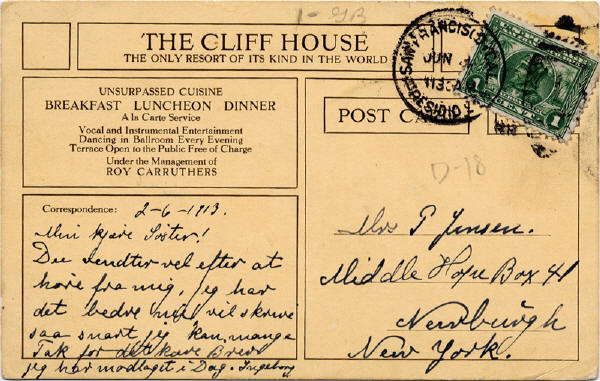 1-GB
THE CLIFF HOUSE
THE ONLY RESORT OF ITS KIND IN THE WORLD
UNSURPASSED CUISINE
BREAKFAST LUNCHEON DINNER
A la Carte Service
Vocal and Instrumental Entertainment
Dancing in Ballroom Every Evening
Terrace Open to the Public Free of Charge
Under the Management of
ROY CARRUTHERS
Correspondence: 2-6-1913.
Min kjære Søster!
Du venter vel efter at
høre fra mig, jeg har
det bedre vil skrive
saa snart jeg kan, mange
Tak for det kære Brev
jeg har modtaget i Dag. Ingeborg
SAN FRANCISCO, CAL.
JUN
1130A
PRESIDIO
1 CENT 1
POST CA
D-18
Mrs P Jensen.
Middle Hope Box 41
Newburgh
New York.